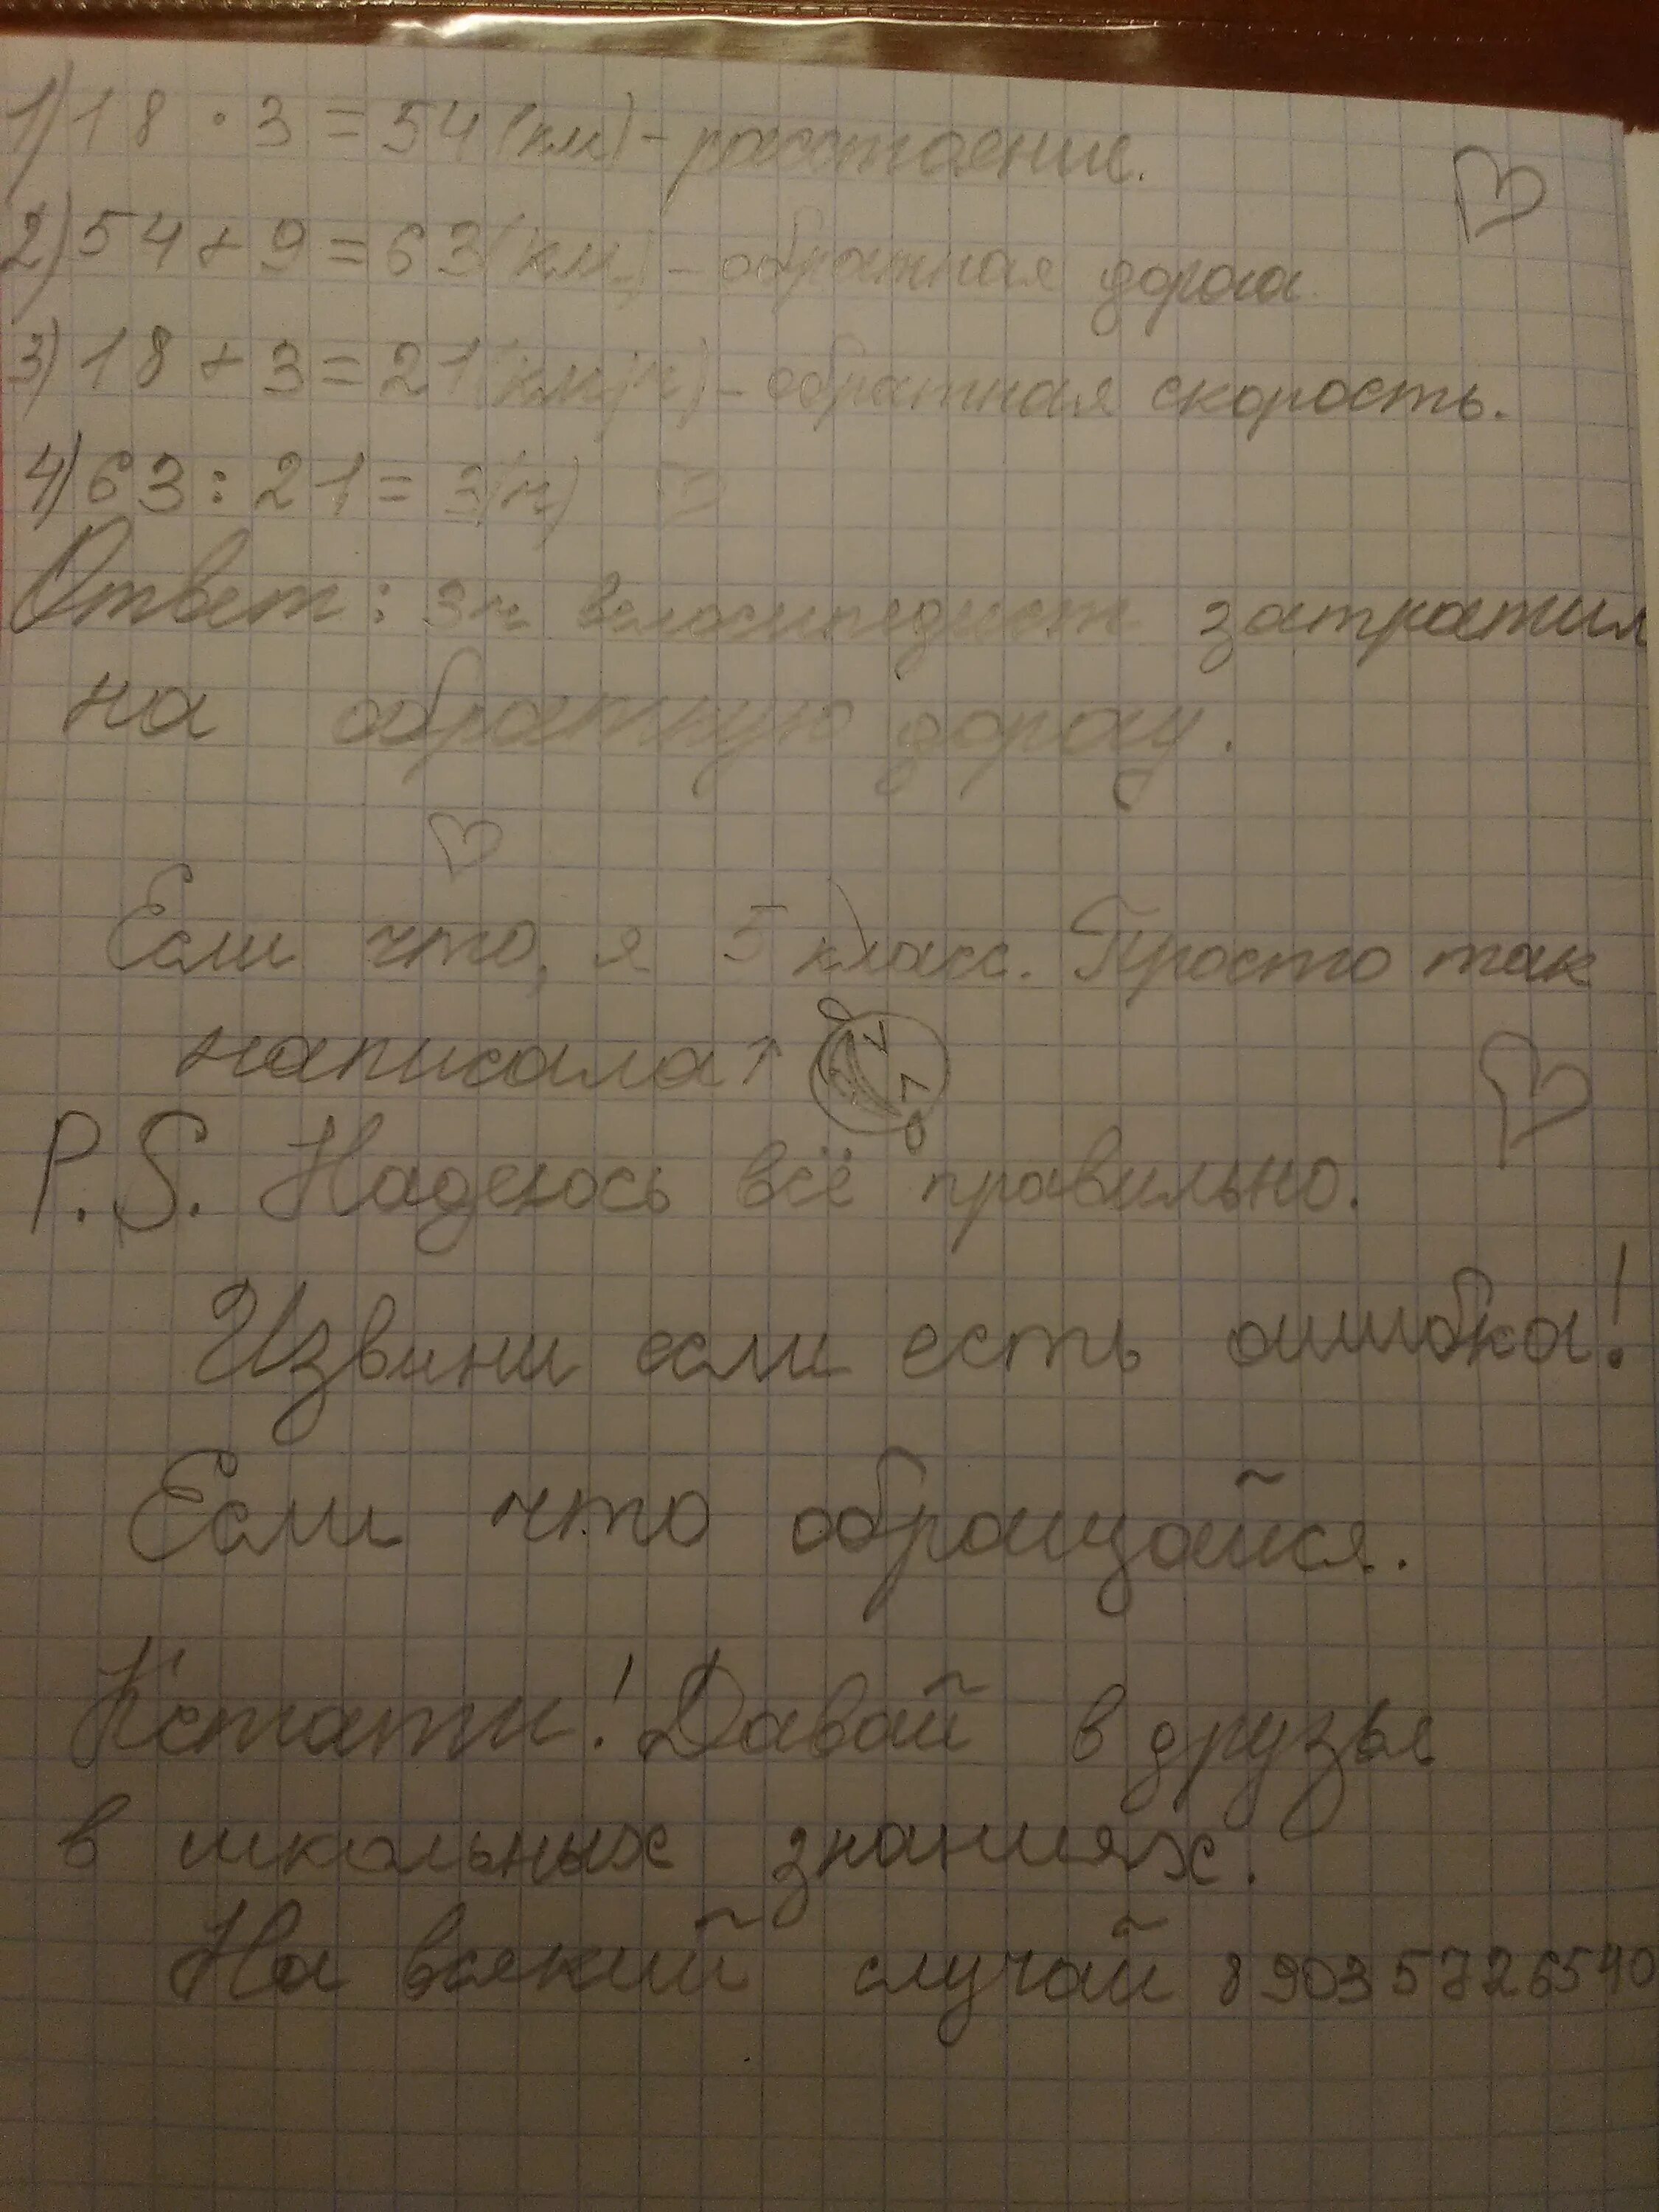 1) 18 · 3 = 54 (км) - расстояние.
2) 54 + 9 = 63 (км) - обратная дорога
3) 18 + 3 = 21 (км/ч) - обратная скорость.
4) 63 : 21 = 3 (ч)
Ответ: 3ч велосипедист затратил
на обратную дорогу.
Если что, я 5 класс. Просто так
написала
P.S. Надеюсь всё правильно.
Извини если есть ошибка!
Если что обращайся.
Кстати! Давай в друзья
в школьных знаниях.
На всякий случай 89035726540